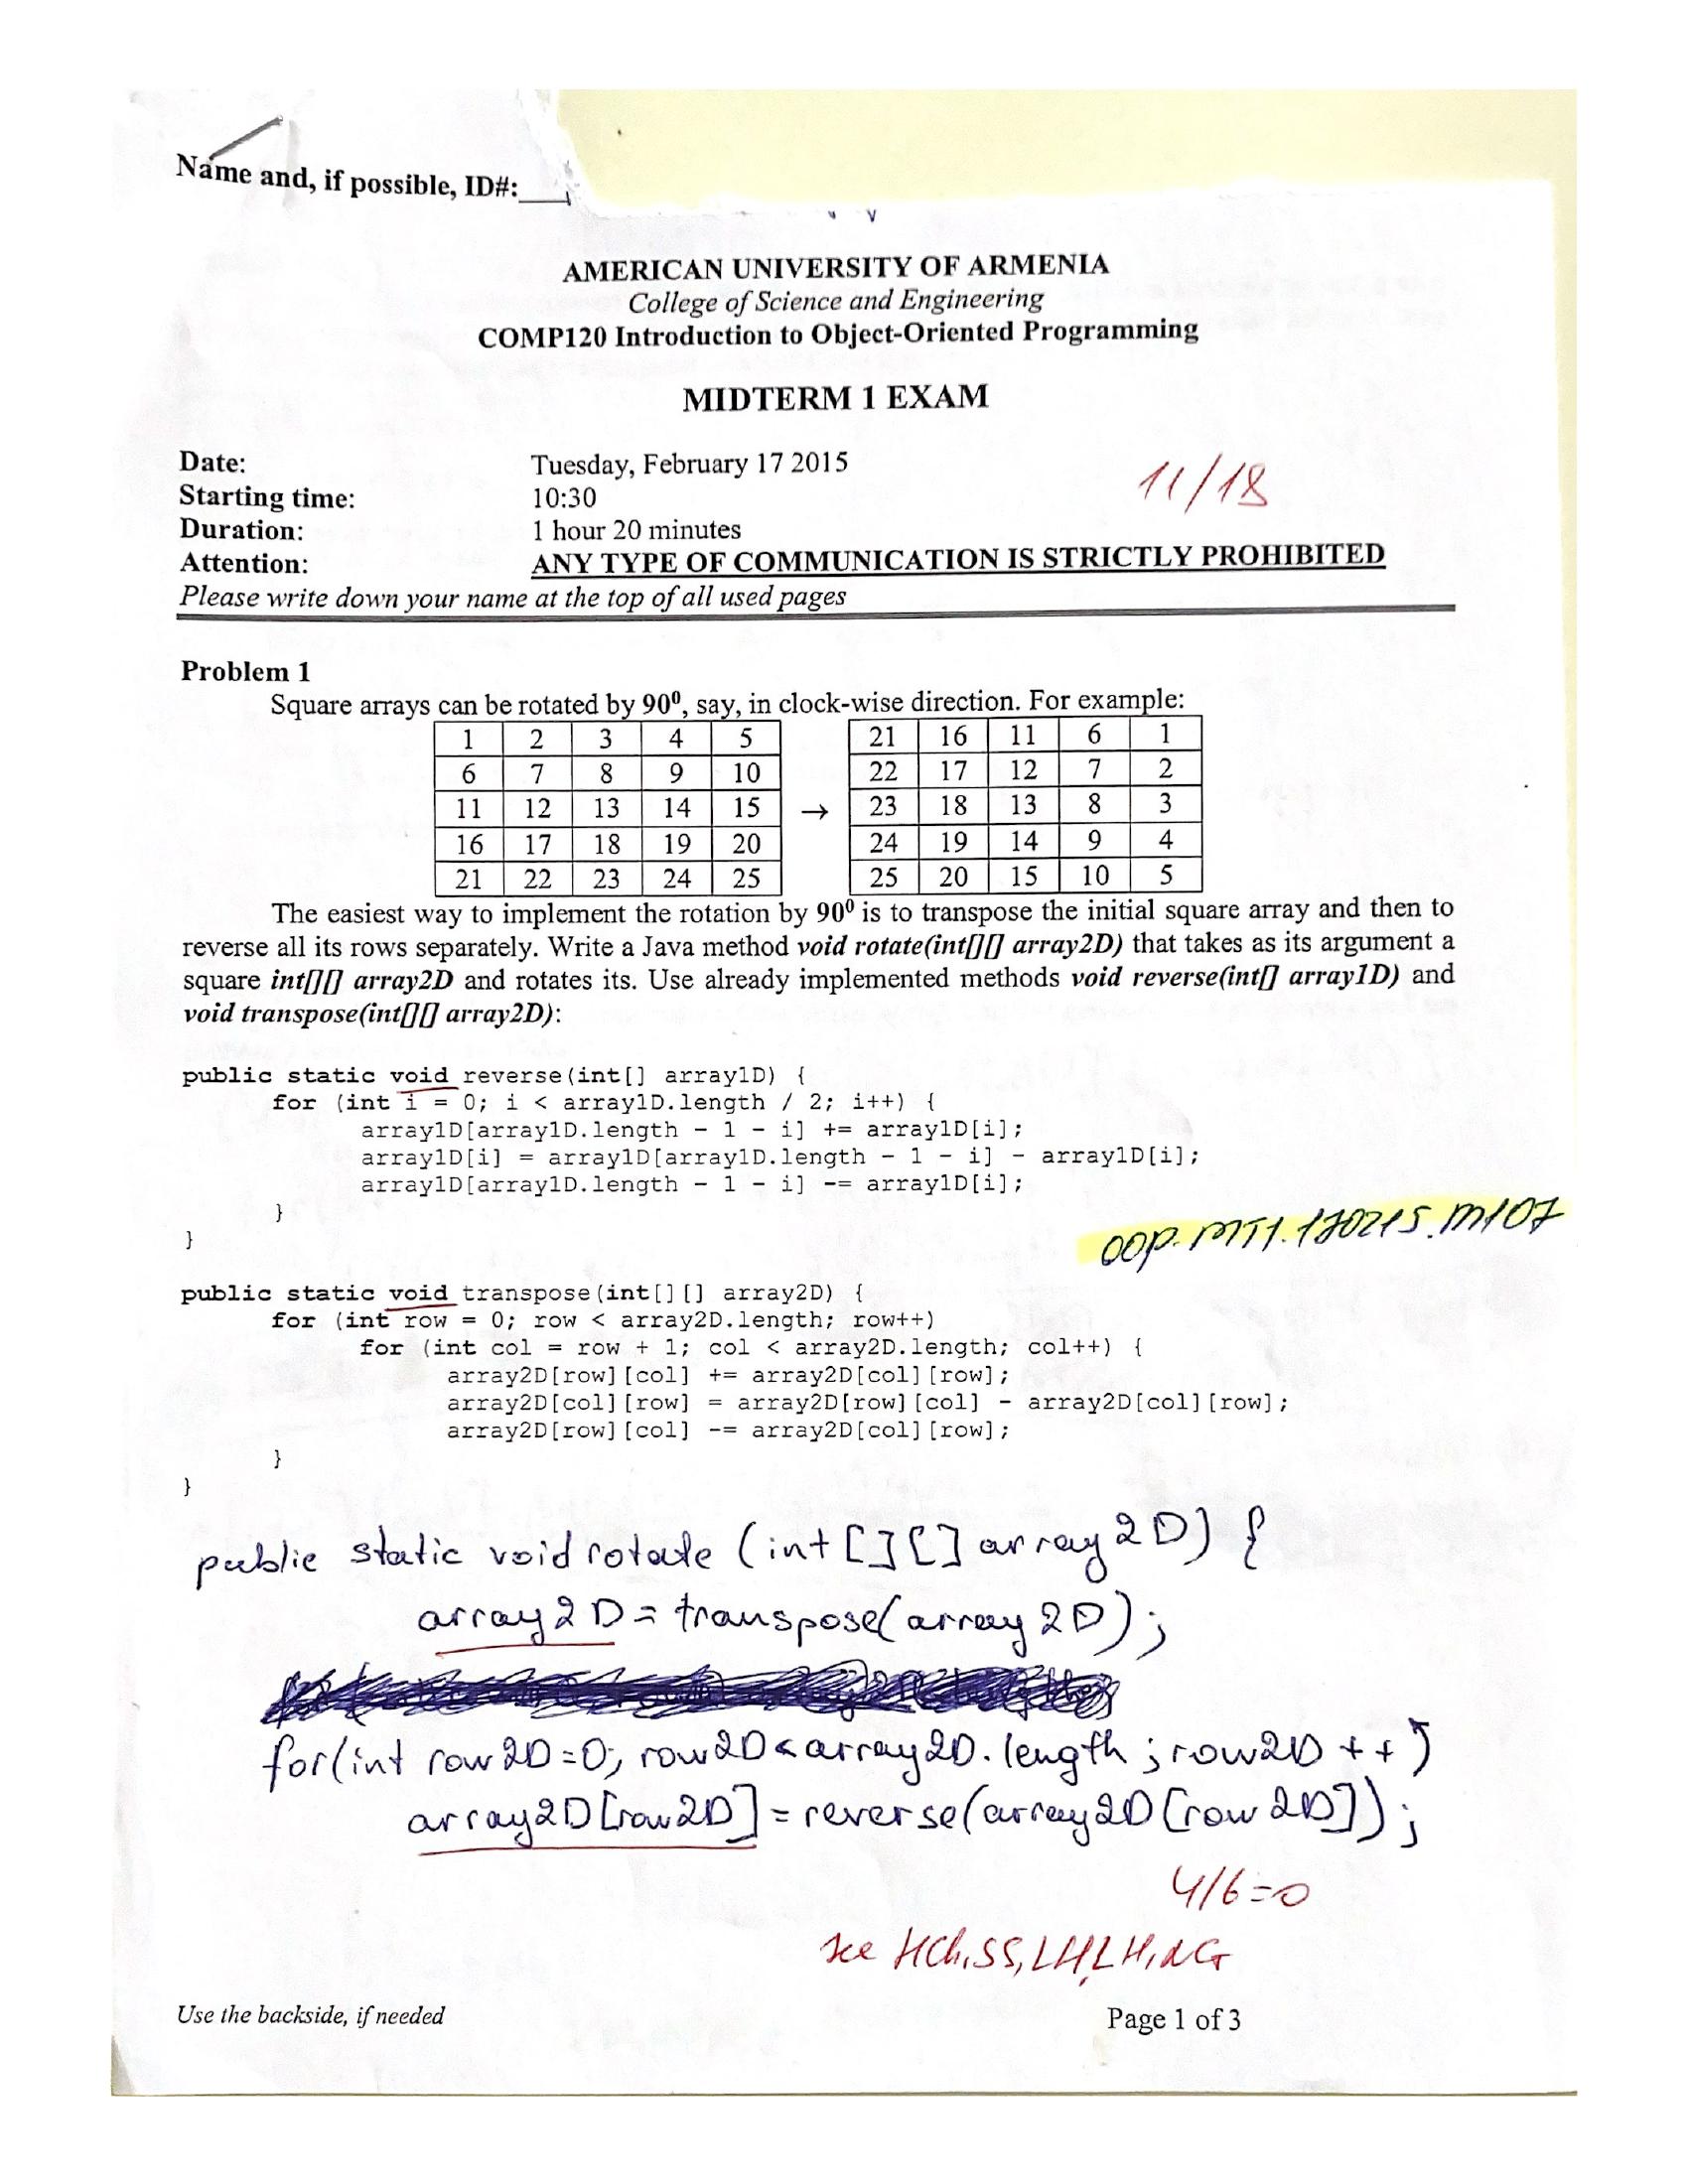 Name and, if possible, ID#:
AMERICAN UNIVERSITY OF ARMENIA
College of Science and Engineering
COMP120 Introduction to Object-Oriented Programming
MIDTERM 1 EXAM
Date: Tuesday, February 17 2015
11/18
Starting time: 10:30
Duration: 1 hour 20 minutes
Attention: ANY TYPE OF COMMUNICATION IS STRICTLY PROHIBITED
Please write down your name at the top of all used pages
Problem 1
Square arrays can be rotated by 90⁰, say, in clock-wise direction. For example:
1 2 3 4 5 21 16 11 6 1
6 7 8 9 10 22 17 12 7 2
11 12 13 14 15 → 23 18 13 8 3
16 17 18 19 20 24 19 14 9 4
21 22 23 24 25 25 20 15 10 5
The easiest way to implement the rotation by 90⁰ is to transpose the initial square array and then to
reverse all its rows separately. Write a Java method void rotate(int[][] array2D) that takes as its argument a
square int[][] array2D and rotates its. Use already implemented methods void reverse(int[] array1D) and
void transpose(int[][] array2D):
public static void reverse(int[] array1D) {
for (int i = 0; i < array1D.length / 2; i++) {
array1D[array1D.length - 1 - i] += array1D[i];
array1D[i] = array1D[array1D.length - 1 - i] - array1D[i];
array1D[array1D.length - 1 - i] -= array1D[i];
}
}
OOP.MT1.170215.M107
public static void transpose(int[][] array2D) {
for (int row = 0; row < array2D.length; row++)
for (int col = row + 1; col < array2D.length; col++) {
array2D[row][col] += array2D[col][row];
array2D[col][row] = array2D[row][col] - array2D[col][row];
array2D[row][col] -= array2D[col][row];
}
}
public static void rotate (int [][] array2D) {
array2D = transpose(array2D);
for(int row2D=0; row2D<array2D.length; row2D++)
array2D[row2D] = reverse(array2D[row2D]);
4/6=0
see HCh, SS, LH, LH, NG
Use the backside, if needed Page 1 of 3